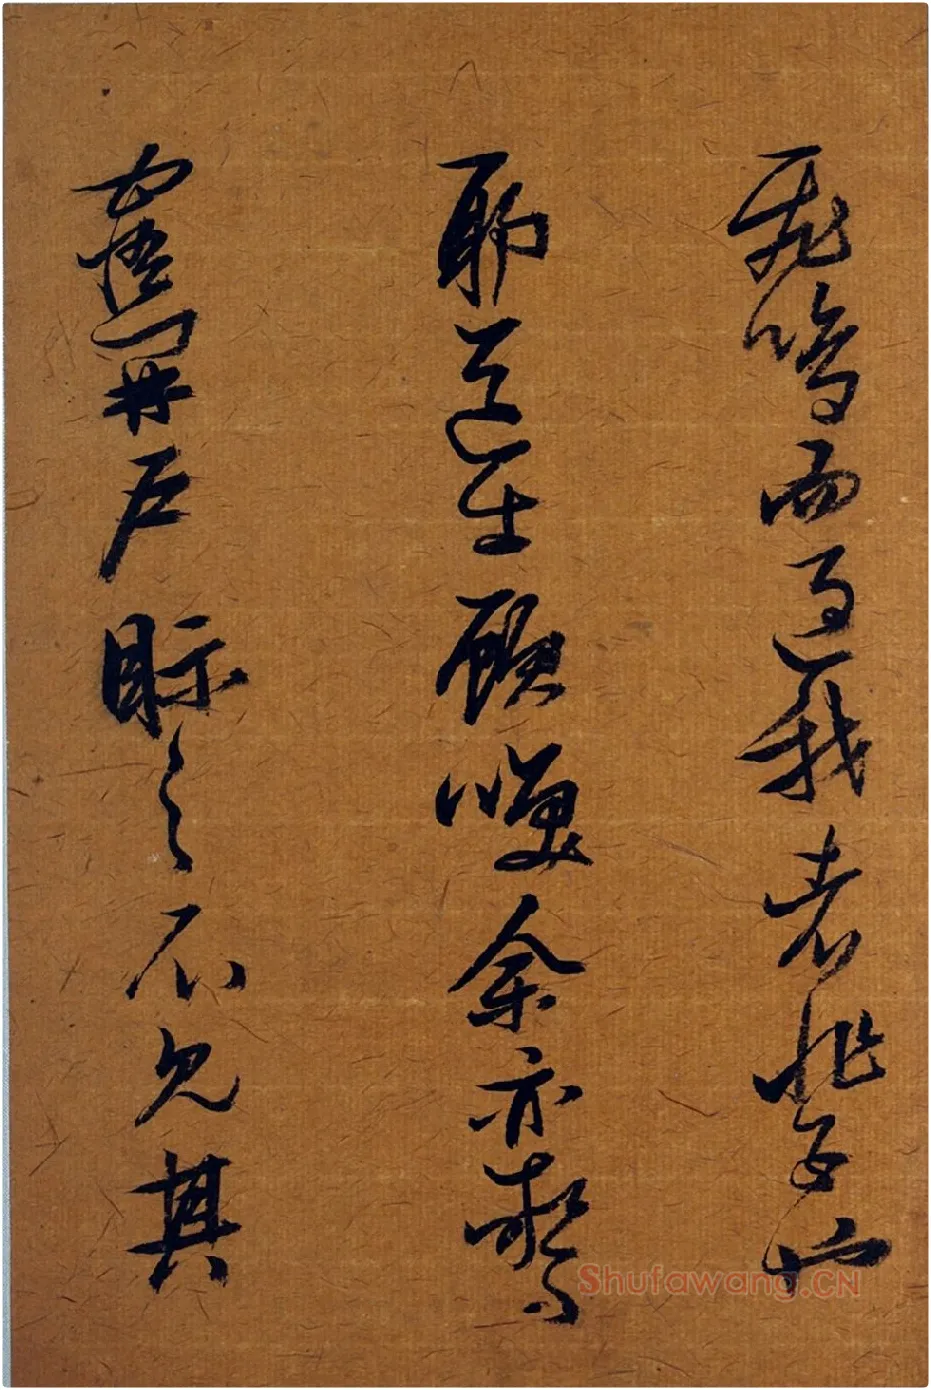 飛鳴而過我者非子也
耶道士顧唉余亦驚
寤開户眎之不見其
Shufawang.CN